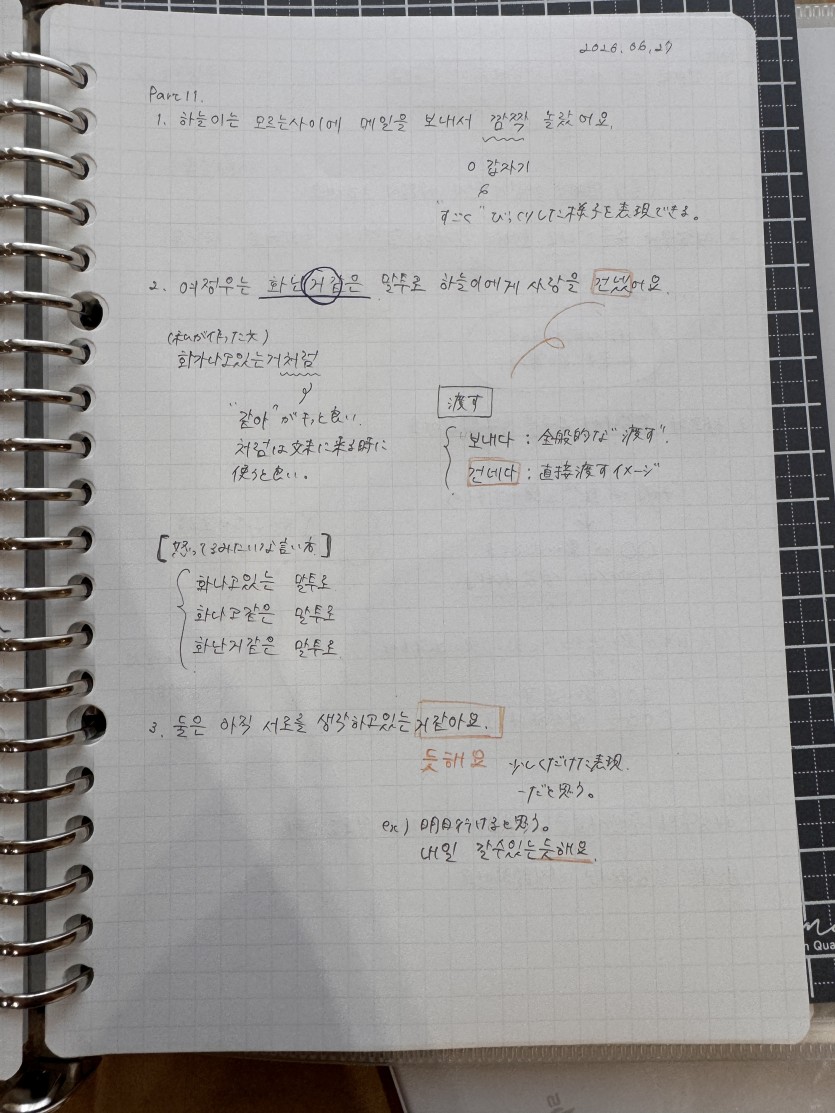 2026.06.27
Part 11.
1. 하늘이는 모르는사이에 메일을 보내서 깜짝 놀랐어요.
○ 갑자기
"すごく" びっくりした様子を表現できる。
2. 여정우는 화난거같은 말투로 하늘이에게 사랑을 건넸어요.
(私が作った文)
화가나고있는거처럼
"같아"がもっと良い.
처럼は文末に来る時に
使うと良い。
渡す
보내다 : 全般的な"渡す".
건네다 : 直接渡すイメージ
[怒ってるみたいな言い方]
화나고있는 말투로
화나고같은 말투로
화난거같은 말투로
3. 둘은 아직 서로를 생각하고있는거같아요.
듯해요 少しくだけた表現.
ーだと思う。
ex) 明日行けると思う。
내일 갈수있는듯해요.
Qua